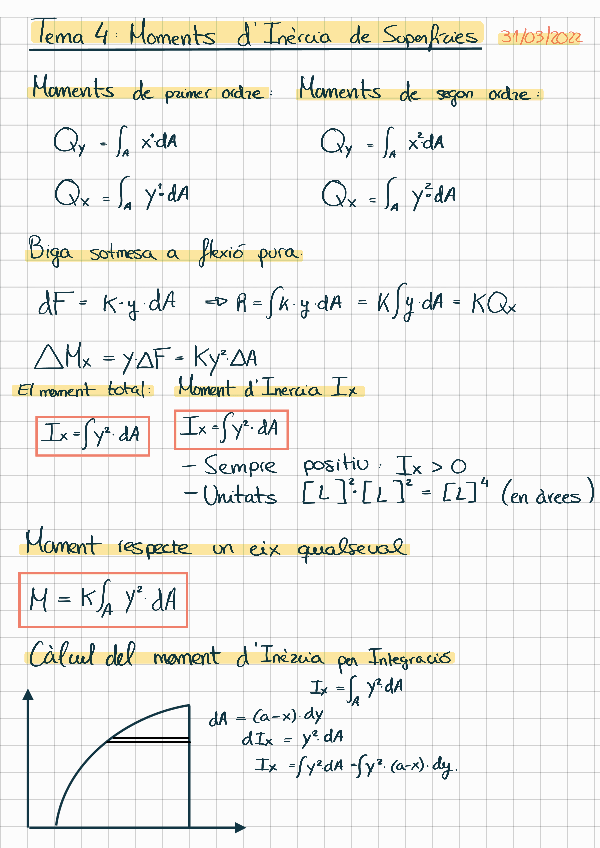 Tema 4: Moments d'Inèrcia de Superfícies 31/03/2022
Moments de primer ordre: Moments de segon ordre:
Qy = ∫A x¹dA Qy = ∫A x²dA
Qx = ∫A y¹·dA Qx = ∫A y²·dA
Biga sotmesa a flexió pura.
dF = K·y·dA => R = ∫K·y·dA = K∫y·dA = KQx
△Mx = y·△F = Ky²·△A
El moment total: Moment d'Inercia Ix
Ix = ∫y²·dA Ix = ∫y²·dA
- Sempre positiu: Ix > 0
- Unitats [L]²·[L]² = [L]⁴ (en àrees)
Moment respecte un eix qualsevol
M = K∫A y²·dA
Càlcul del moment d'Inèrcia per Integració
Ix = ∫A y²dA
dA = (a-x)·dy
dIx = y²·dA
Ix = ∫y²dA = ∫y²·(a-x)·dy.